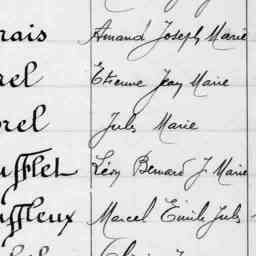 rais Armand Joseph Marie
rel Etienne Jean Marie
rel Jules Marie
ufflet Léon Bernard J. Marie
uffleux Marcel Emile Jules